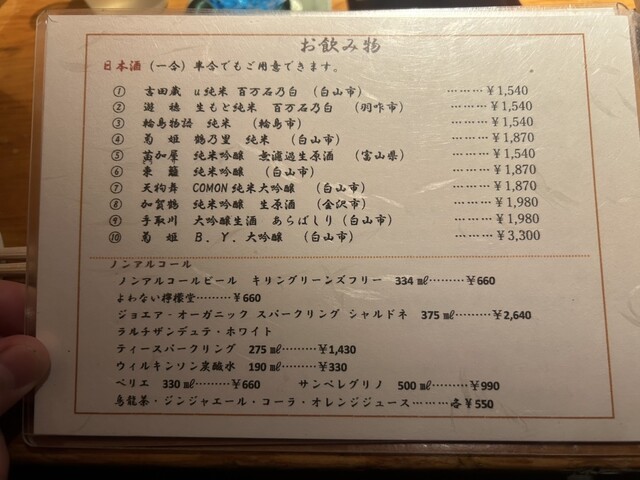 お飲み物
日本酒（一合）半合でもご用意できます。
① 吉田蔵 u純米 百万石乃白 （白山市） ………￥1,540
② 遊穂 生もと純米 百万石乃白 （羽咋市） ………￥1,540
③ 輪島物語 純米 （輪島市） ………￥1,540
④ 菊姫 鶴乃里 純米 （白山市） ………￥1,870
⑤ 苗加屋 純米吟醸 無濾過生原酒 （富山県） ………￥1,540
⑥ 東籬 純米吟醸 （白山市） ………￥1,870
⑦ 天狗舞 COMON 純米大吟醸 （白山市） ………￥1,870
⑧ 加賀鶴 純米吟醸 生原酒 （金沢市） ………￥1,980
⑨ 手取川 大吟醸生酒 あらばしり（白山市） ………￥1,980
⑩ 菊姫 B．Y．大吟醸 （白山市） ………￥3,300
ノンアルコール
ノンアルコールビール キリングリーンズフリー 334㎖………￥660
よわない檸檬堂………￥660
ジョエア・オーガニック スパークリング シャルドネ 375㎖………￥2,640
ラルチザンデュテ・ホワイト
ティースパークリング 275㎖………￥1,430
ウィルキンソン炭酸水 190㎖………￥330
ペリエ 330㎖………￥660 サンペレグリノ 500㎖………￥990
烏龍茶・ジンジャエール・コーラ・オレンジジュース………各￥550